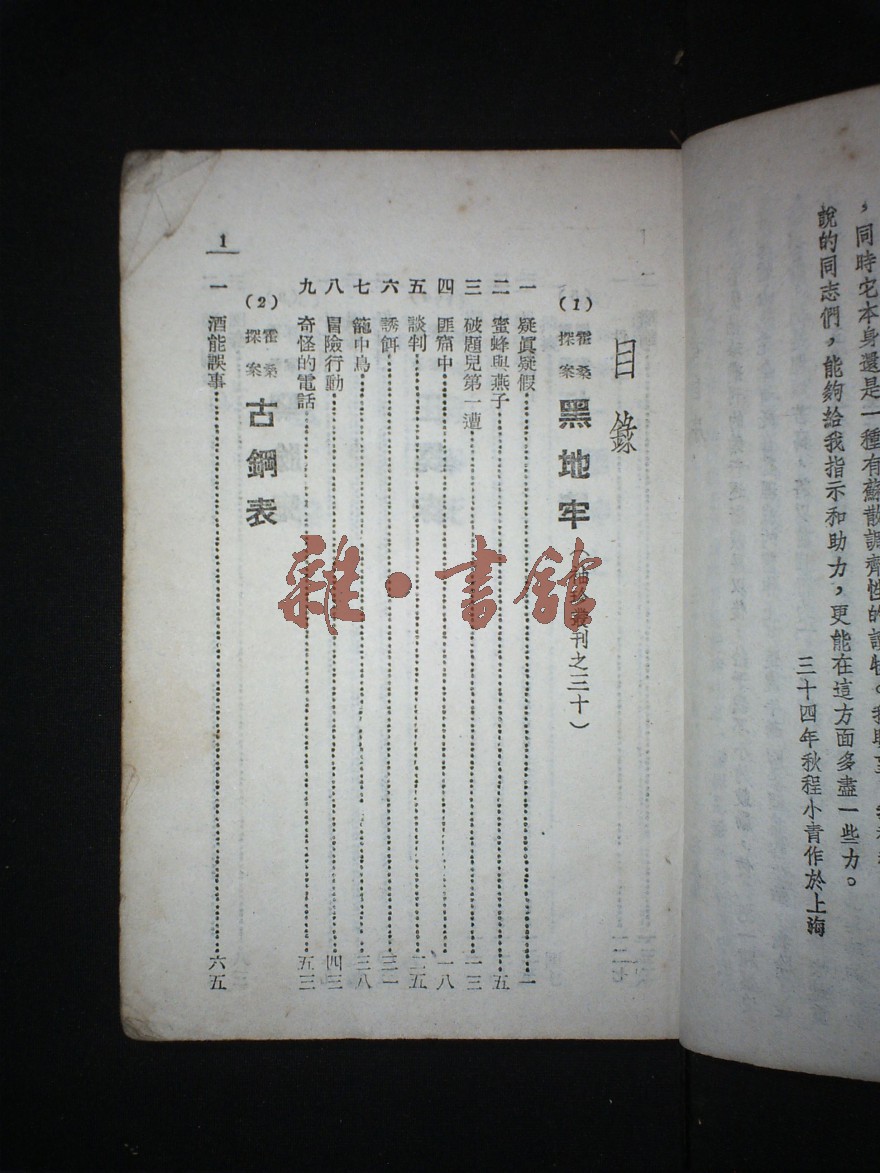 ，同時宅本身還是一種有蘇散調齊性的讀物。我
說的同志們，能夠給我指示和助力，更能在這方面多盡一些力。
三十四年秋程小青作於上海
目錄
（1）霍桑探案 黑地牢（袖珍叢刊之三十）
一 疑眞疑假 一
二 蜜蜂與燕子 五
三 破題兒第一遭 一三
四 匪窟中 一八
五 談判 二五
六 誘餌 三一
七 籠中鳥 三八
八 冒險行動 四三
九 奇怪的電話 五三
（2）霍桑探案 古鋼表
一 酒能誤事 六五
1
雜·書館